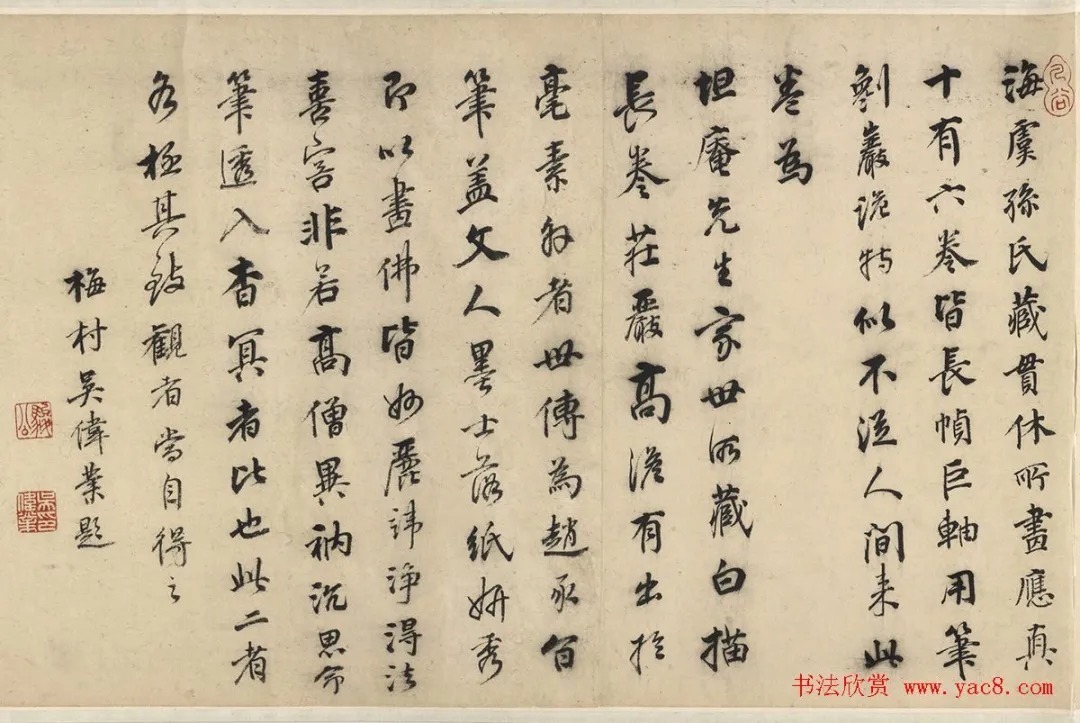 海虞孫氏藏貫休所畫應真
十有六卷皆長幀巨軸用筆
劖巖詭特似不從人間來此
卷為
坦庵先生家世所藏白描
長卷莊嚴高澹有出於
毫素外者世傳為趙承旨
筆蓋文人墨士落紙妍秀
即以畫佛皆妙麗諱淨得法
喜宻非若高僧異衲沉思命
筆透入杳冥者比也此二者
各極其致觀者當自得之
梅村吳偉業題
书法欣赏 www.yac8.com